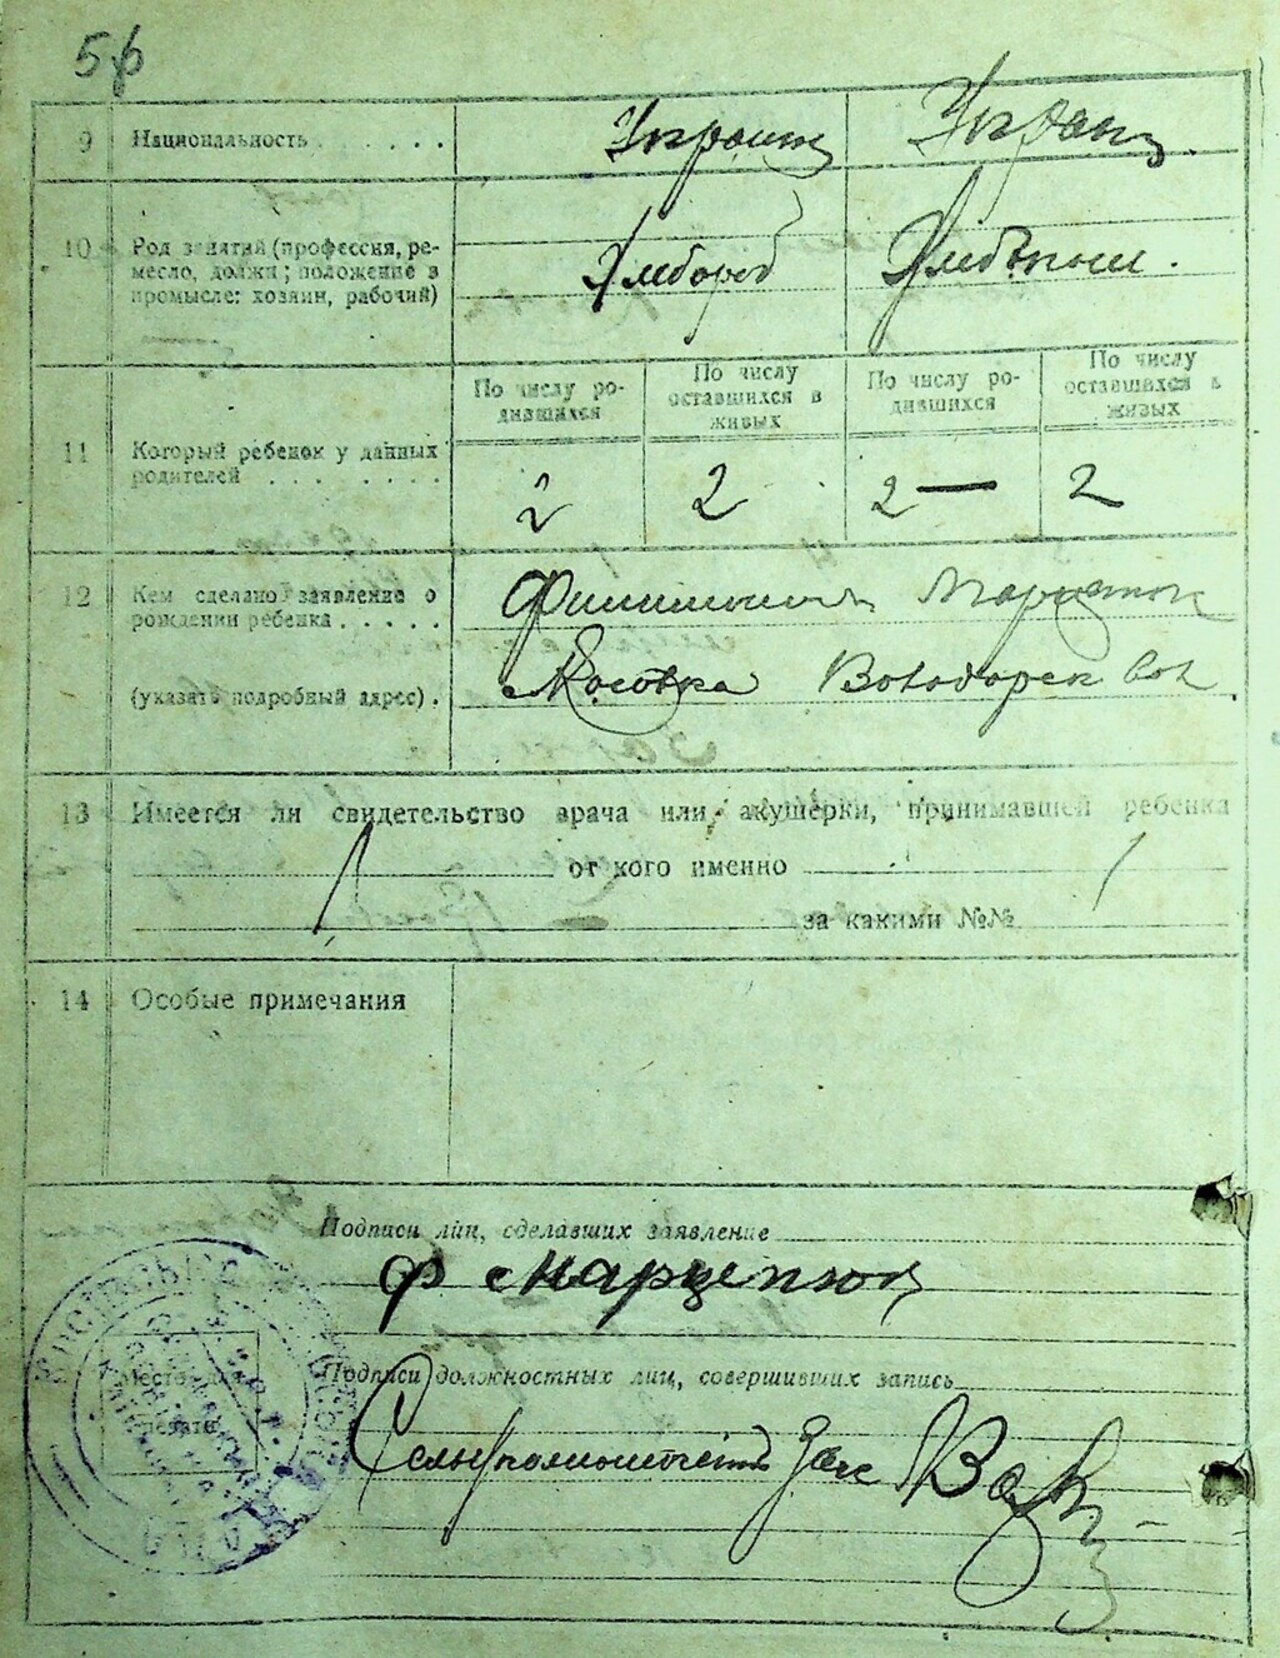 9 Национальность . . . . . Украинц Украинц.
10 Род занятий (профессия, ре-
месло, должн; положение в
промысле: хозяин, рабочий)
Хлебороб
По числу ро-
дившихся
По числу
оставшихся в
живых
По числу ро-
дившихся
По числу
оставшихся в
живых
11 Который ребенок у данных
родителей . . . . . . .
2 2 2 — 2
12 Кем сделано заявление о
рождении ребенка . . . . .
(указать подробный адрес) .
Мосовка Володарск вол
13 Имеется ли свидетельство врача или акушерки, принимавшей ребенка
от кого именно
за какими №№
14 Особые примечания
Подписи лиц, сделавших заявление
Ф Марценюк
Место для
печати
Подписи должностных лиц, совершивших запись
Загс